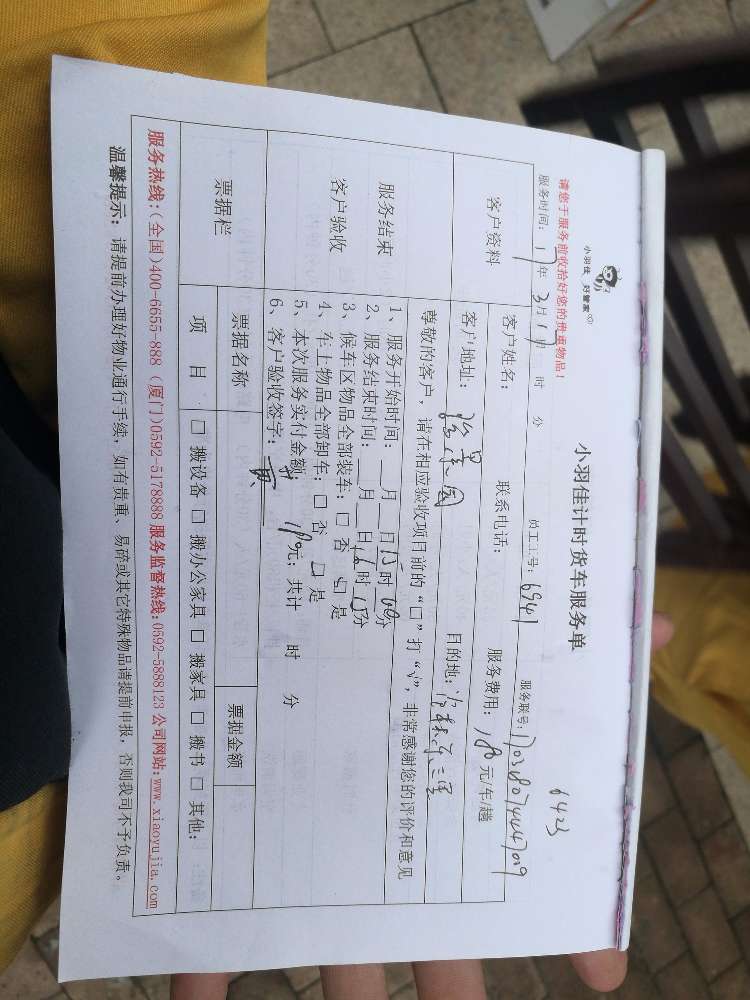 小羽佳 好管家
6423
小羽佳计时货车服务单
请您于服务前收拾好您的贵重物品!
服务时间: 17年 3月 17 时 分 员工工号: 6941 服务联号:
客户资料
客户姓名: 联系电话: 服务费用: 180元/车/趟
客户地址: 目的地:
服务结束
客户验收
尊敬的客户, 请在相应验收项目前的“□”打“√”, 非常感谢您的评价和意见
1、服务开始时间: 月 日 15时 00分
2、服务结束时间: 月 日 16时 15分
3、候车区物品全部装车: □ 否 □ 是
4、车上物品全部卸车: □ 否 □ 是
5、本次服务实付金额: 180元; 共计 时 分
6、客户验收签字:
票据栏
票据名称 票据金额
项 目 □ 搬设备 □ 搬办公家具 □ 搬家具 □ 搬书 □ 其他:
服务热线:(全国)400-6655-888 (厦门)0592-5178888 服务监督热线:0592-5888123 公司网站:www.xiaoyujia.com
温馨提示: 请提前办理好物业通行手续, 如有贵重、易碎或其它特殊物品请提前申报, 否则我司不予负责。